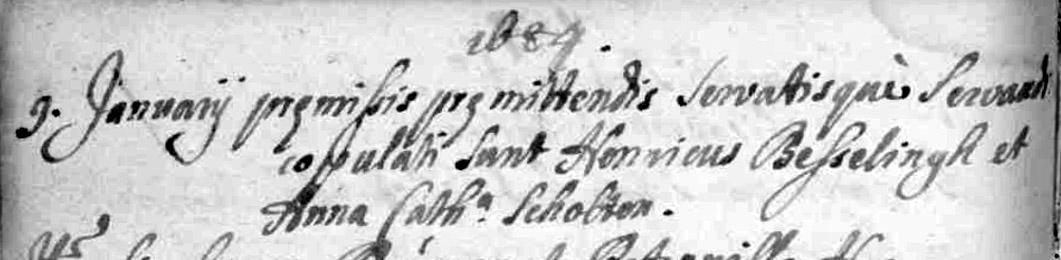 1684.
9. Januarij pręmissis pręmittendis servatisquè servand
copulati sunt Henricus Besselingk et
Anna Cathª Scholten.